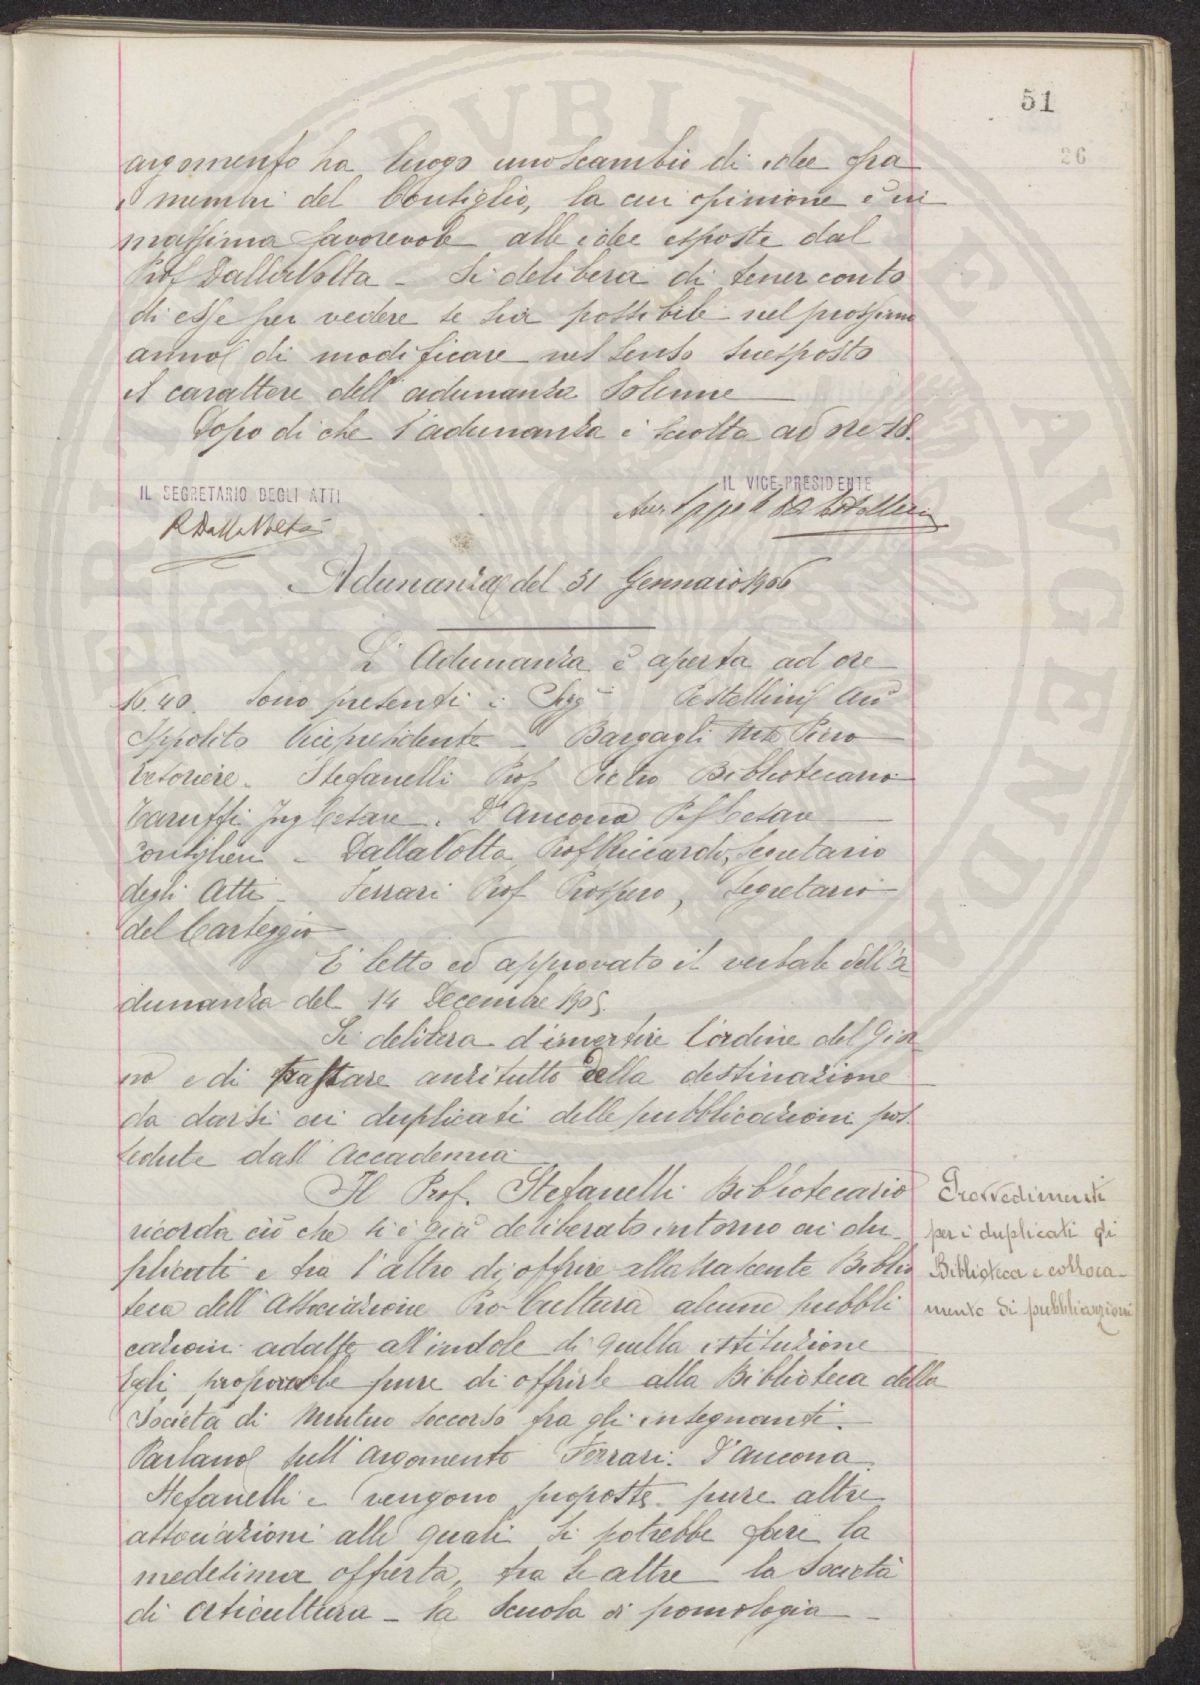 51
26
argomento ha luogo uno scambio di idee fra
i membri del Consiglio, la cui opinione è in
massima favorevole alle idee esposte dal
Prof Dalla Volta - Si delibera di tener conto
di esse per vedere se sia possibile nel prossimo
anno di modificare nel senso suesposto
il carattere dell'adunanza solenne
Dopo di che l'adunanza è sciolta ad ore 18.
IL SEGRETARIO DEGLI ATTI
IL VICE-PRESIDENTE
R Dalla Volta
Adunanza del 31 Gennaio 1906
L'Adunanza è aperta ad ore
16.40. Sono presenti i Sigg.ri Pestellini Avv
Ippolito Vicepresidente - Bargagli Mse Piero
tesoriere - Stefanelli Prof Pietro Bibliotecario
Caruffi Ing Cesare. D'Ancona Prof Cesare
Consiglieri - Dalla Volta Prof Riccardo, Segretario
degli Atti - Ferrari Prof Prospero, Segretario
del Carteggio
E' letto ed approvato il verbale dell'a
dunanza del 14 Decembre 1905.
Si delibera d'invertire l'ordine del gior
no e di trattare anzitutto della destinazione
da darsi ai duplicati delle pubblicazioni pos
sedute dall'Accademia
Il Prof. Stefanelli Bibliotecario
ricorda ciò che si è già deliberato intorno ai du-
plicati e fra l'altro di offrire alla nascente Biblio
teca dell'Associazione Pro Cultura alcune pubbli
cazioni adatte all'indole di quella istituzione
Egli proporrebbe pure di offrirle alla Biblioteca della
Società di Mutuo soccorso fra gli insegnanti.
Parlano sull'argomento Ferrari. D'Ancona
Stefanelli e vengono proposte pure altre
associazioni alle quali si potrebbe fare la
medesima offerta, fra le altre la Società
di orticultura - la Scuola di pomologia -
Provvedimenti
per i duplicati di
Biblioteca e colloca-
mento di pubblicazioni